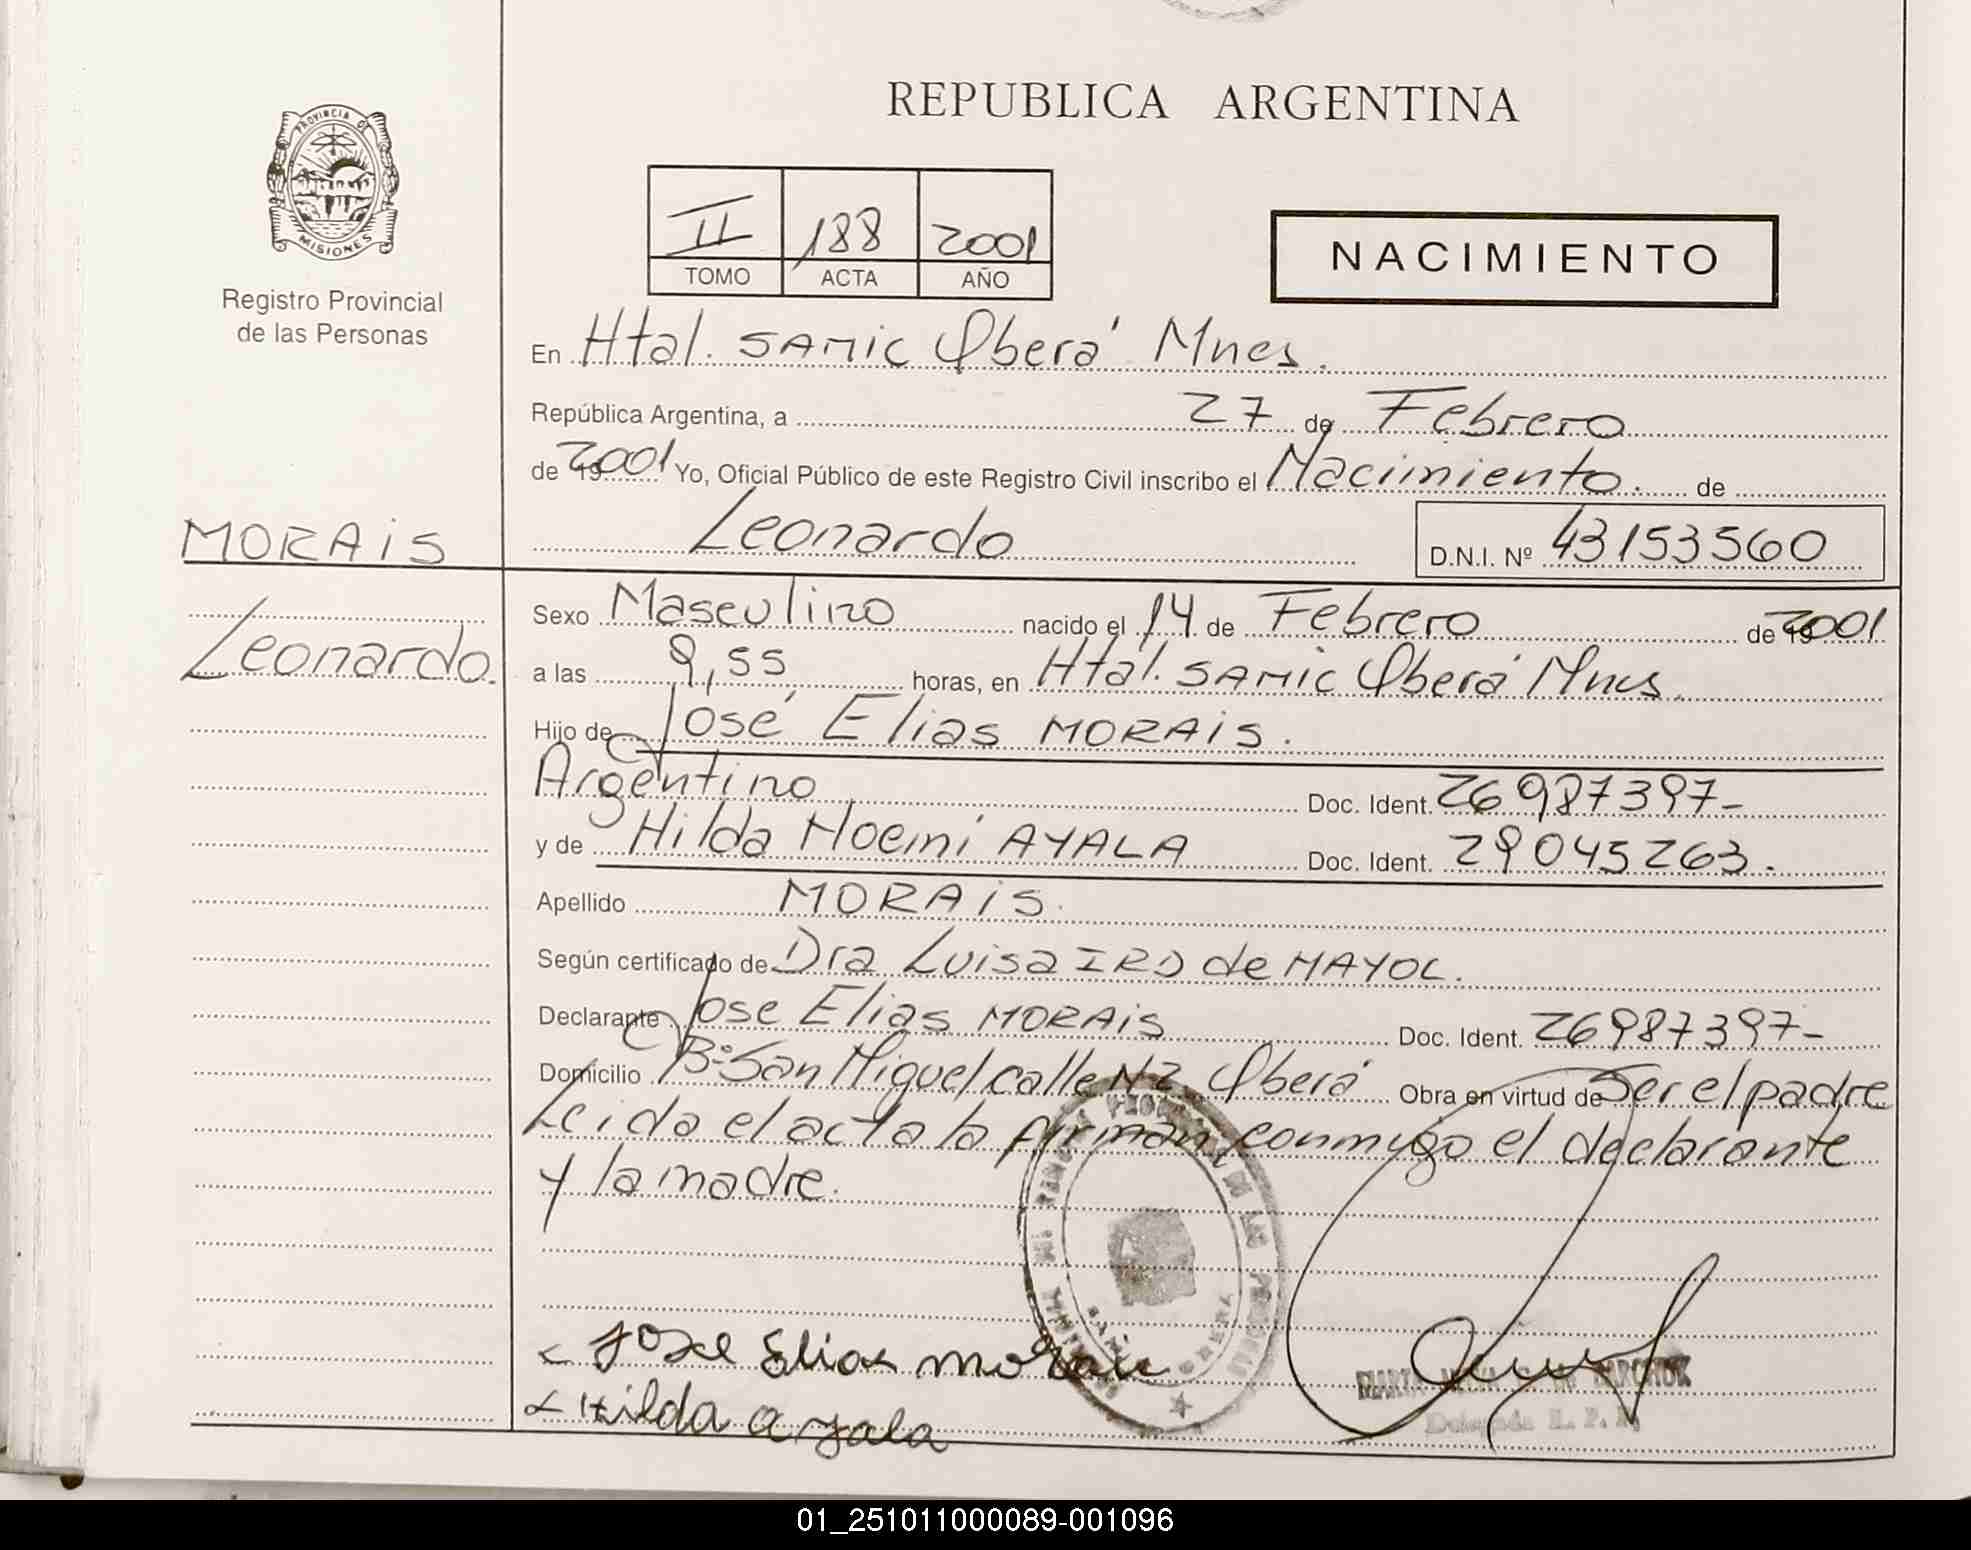 REPUBLICA ARGENTINA
PROVINCIA DE
MISIONES
Registro Provincial
de las Personas
II 188 2001
TOMO ACTA AÑO
NACIMIENTO
En Htal. SAMIC Oberá Mnes.
República Argentina, a 27 de Febrero
de 2001 Yo, Oficial Público de este Registro Civil inscribo el Nacimiento. de
Leonardo D.N.I. Nº 43153560
MORAiS
Leonardo.
Sexo Masculino nacido el 14 de Febrero de 2001
a las 9,55 horas, en Htal. SAMIC Oberá Mnes.
Hijo de José Elias MORAiS.
Argentino Doc. Ident. 26987397-
y de Hilda Noemí AYALA Doc. Ident. 29045263.
Apellido MORAiS.
Según certificado de Dra Luisa IRD de MAYOL.
Declarante Jose Elias MORAiS Doc. Ident. 26987397-
Domicilio Bº San Miguel calle N2 Oberá Obra en virtud de Ser el padre
Leida el acta la firman conmigo el declarante
y la madre.
Jose Elias morais
Hilda ayala
MARTA
Delegada R. P. P.
01_251011000089-001096